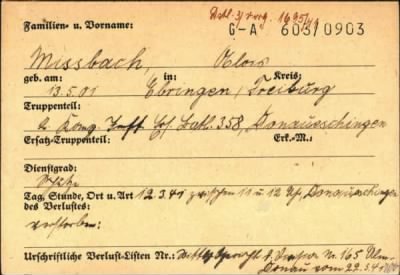 Familien- u. Vorname:
G-A 603/0903
Missbach, Alois
geb. am: in: Kreis:
13.5.01 Ebringen / Freiburg
Truppenteil:
2. Komp. Ers. Batl. 358, Donaueschingen
Ersatz-Truppenteil: Erk.-M.:
Dienstgrad:
Schtz.
Tag, Stunde, Ort u. Art 12.3.41 zwischen 11 u 12 Uhr, Donaueschingen
des Verlustes:
verstorben:
Urschriftliche Verlust-Listen Nr.: 165 Ulm-
Donau vom 22.3.41